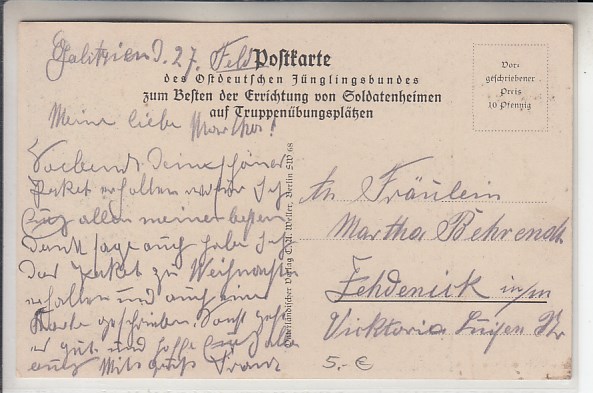 Galizien d. 27. Feld
Postkarte
des Ostdeutschen Jünglingsbundes
zum Besten der Errichtung von Soldatenheimen
auf Truppenübungsplätzen
Vor-
geschriebener
Preis
10 Pfennig
Meine liebe Martha!
dein schönes
Paket erhalten wofür ich
allen meinen besten
Dank sage auch habe ich
das Paket zu Weihnachten
erhalten und auch eine
Karte geschrieben. Sonst geht
es gut und hoffe
auch Mit Gruß Franz
Ostdeutscher Verlag C. A. Weller, Berlin SW 68
An Fräulein
Martha Behrendt
Zehdenick i/m
Vicktoria Luisen Str
5,- €